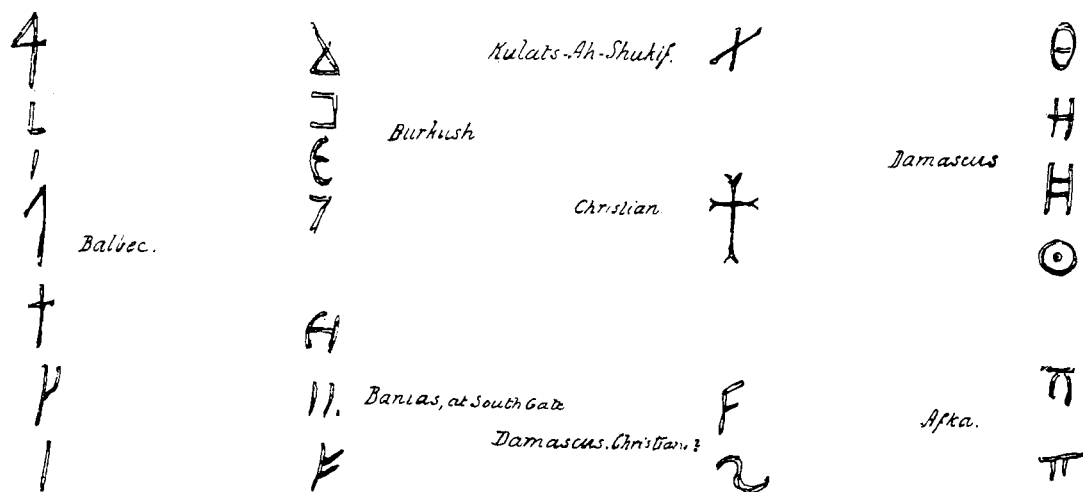 Kulats-Ah-Shukif.
Burkush
Damascus
Christian
Balbec.
Banias, at South Gate
Afka.
Damascus. Christian?